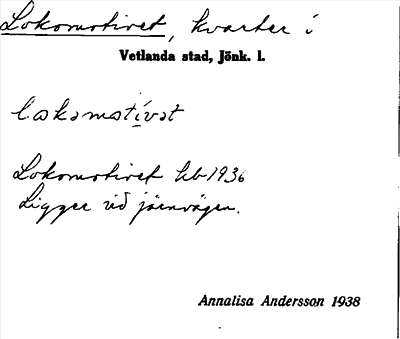 Lokomotivet, kvarter i
Vetlanda stad, Jönk. l.
lokamotívat
Lokomotivet kb 1936
Ligger vid järnvägen.
Annalisa Andersson 1938